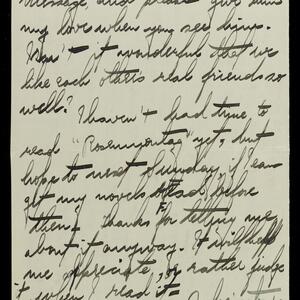 message, and please give him
my love when you see him.
Isn't it wonderful that we
like each other's real friends so
well? I haven't had time to
read "Rosenmontag" yet, but
hope to next Sunday, if I can
get my novels read before
then. Thanks for telling me
about it anyway. It will help
me appreciate, or rather judge
it when I read it.